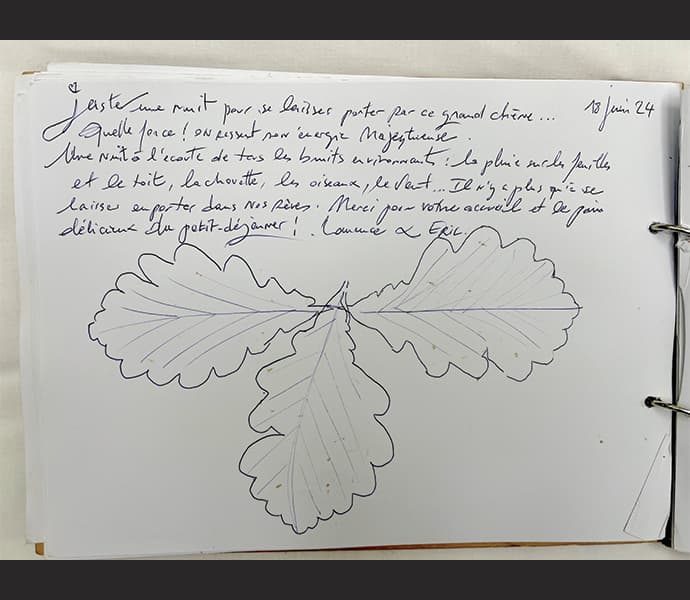 Juste une nuit pour se laisser porter par ce grand chêne... 18 juin 24
Quelle force ! On ressent son énergie Majestueuse.
Une nuit à l'écoute de tous les bruits environnants : la pluie sur les feuilles
et le toit, la chouette, les oiseaux, le vent... Il n'y a plus qu'à se
laisser emporter dans nos rêves. Merci pour votre accueil et le pain
délicieux du petit-déjeuner ! Laurence & Eric.